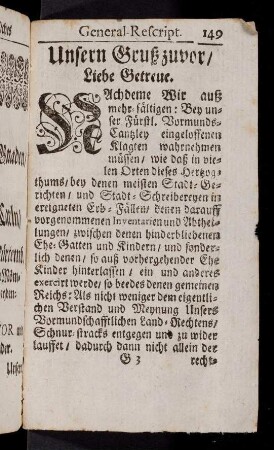 General-Rescript. 149
Unsern Gruß zuvor/
Liebe Getreue.
NAchdeme Wir auß
mehr-fältigen: Bey un-
ser Fürstl. Vormunds-
Cantzley eingeloffenen
Klagten wahrnehmen
müssen/ wie daß in vie-
len Orten dieses Hertzog-
thums/ bey denen meisten Stadt-Ge-
richten/ und Stadt-Schreibereyen in
ereigneten Erb-Fällen/ denen darauff
vorgenommenen Inventarien und Abthei-
lungen/ zwischen denen hinderbliedenen
Ehe-Gatten und Kindern/ und sonder-
lich denen/ so auß vorhergehender Ehe
Kinder hinterlassen/ ein und anderes
exercirt werde/ so beedes denen gemeinen
Reichs: Als nicht weniger dem eigentli-
chen Verstand und Meynung Unsers
Vormundschafftlichen Land-Rechtens/
Schnur-stracks entgegen und zu wider
lauffet/ dadurch dann nicht allein der
G 3 recht-